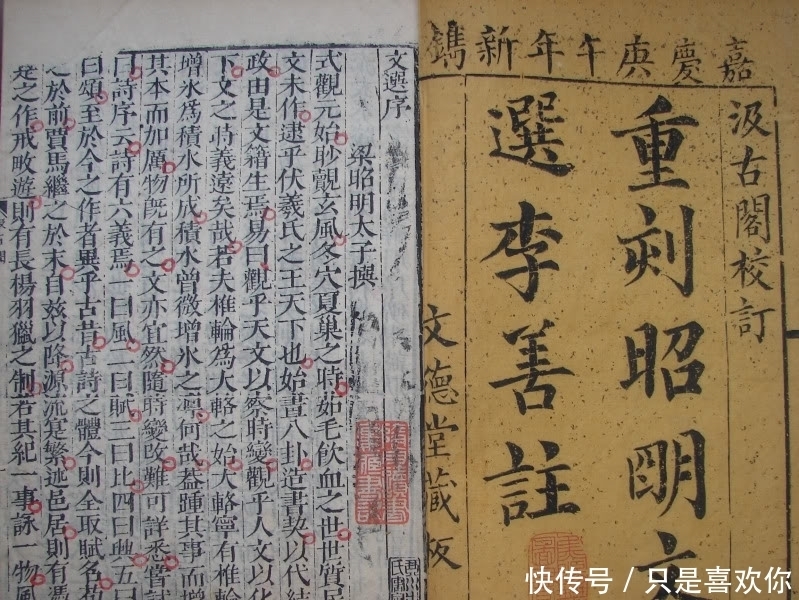 嘉慶庚午年新鐫
汲古閣校訂
重刻昭明文
選李善註
文德堂藏板
文選序
梁昭明太子撰
式觀元始眇覿玄風冬穴夏巢之時茹毛飲血之世世質民
文未作逮乎伏羲氏之王天下也始畫八卦造書契以代結
政由是文籍生焉易曰觀乎天文以察時變觀乎人文以化
下文之時義遠矣哉若夫椎輪爲大輅之始大輅寧有椎輪
增氷爲積水所成積水曾微增氷之凛何哉葢踵其事而增
其本而加厲物旣有之文亦宜然隨時變改難可詳悉嘗試
曰詩序云詩有六義焉一曰風二曰賦三曰比四曰興五曰
曰頌至於今之作者異乎古昔古詩之體今則全取賦名荀
之於前賈馬繼之於末自兹以降源流寔繁述邑居則有憑
是之作戒畋遊則有長楊羽獵之制若其紀一事詠一物風
快传号 / 只是喜欢你